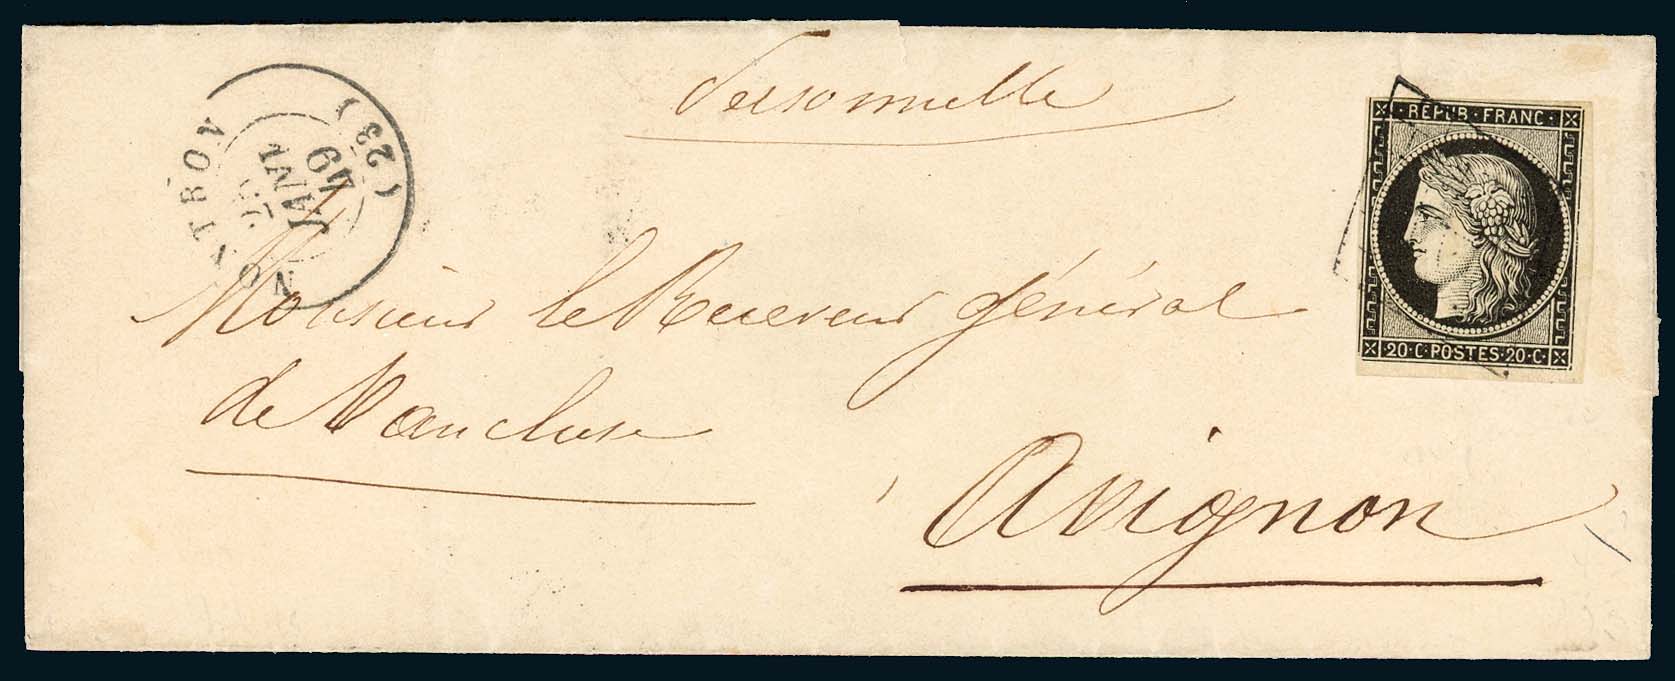 Personnelle
NONTRON (23)
JANV
49
REPUB·FRANC·
20·C·POSTES·20·C·
Monsieur le Receveur général
de Vaucluse
Avignon